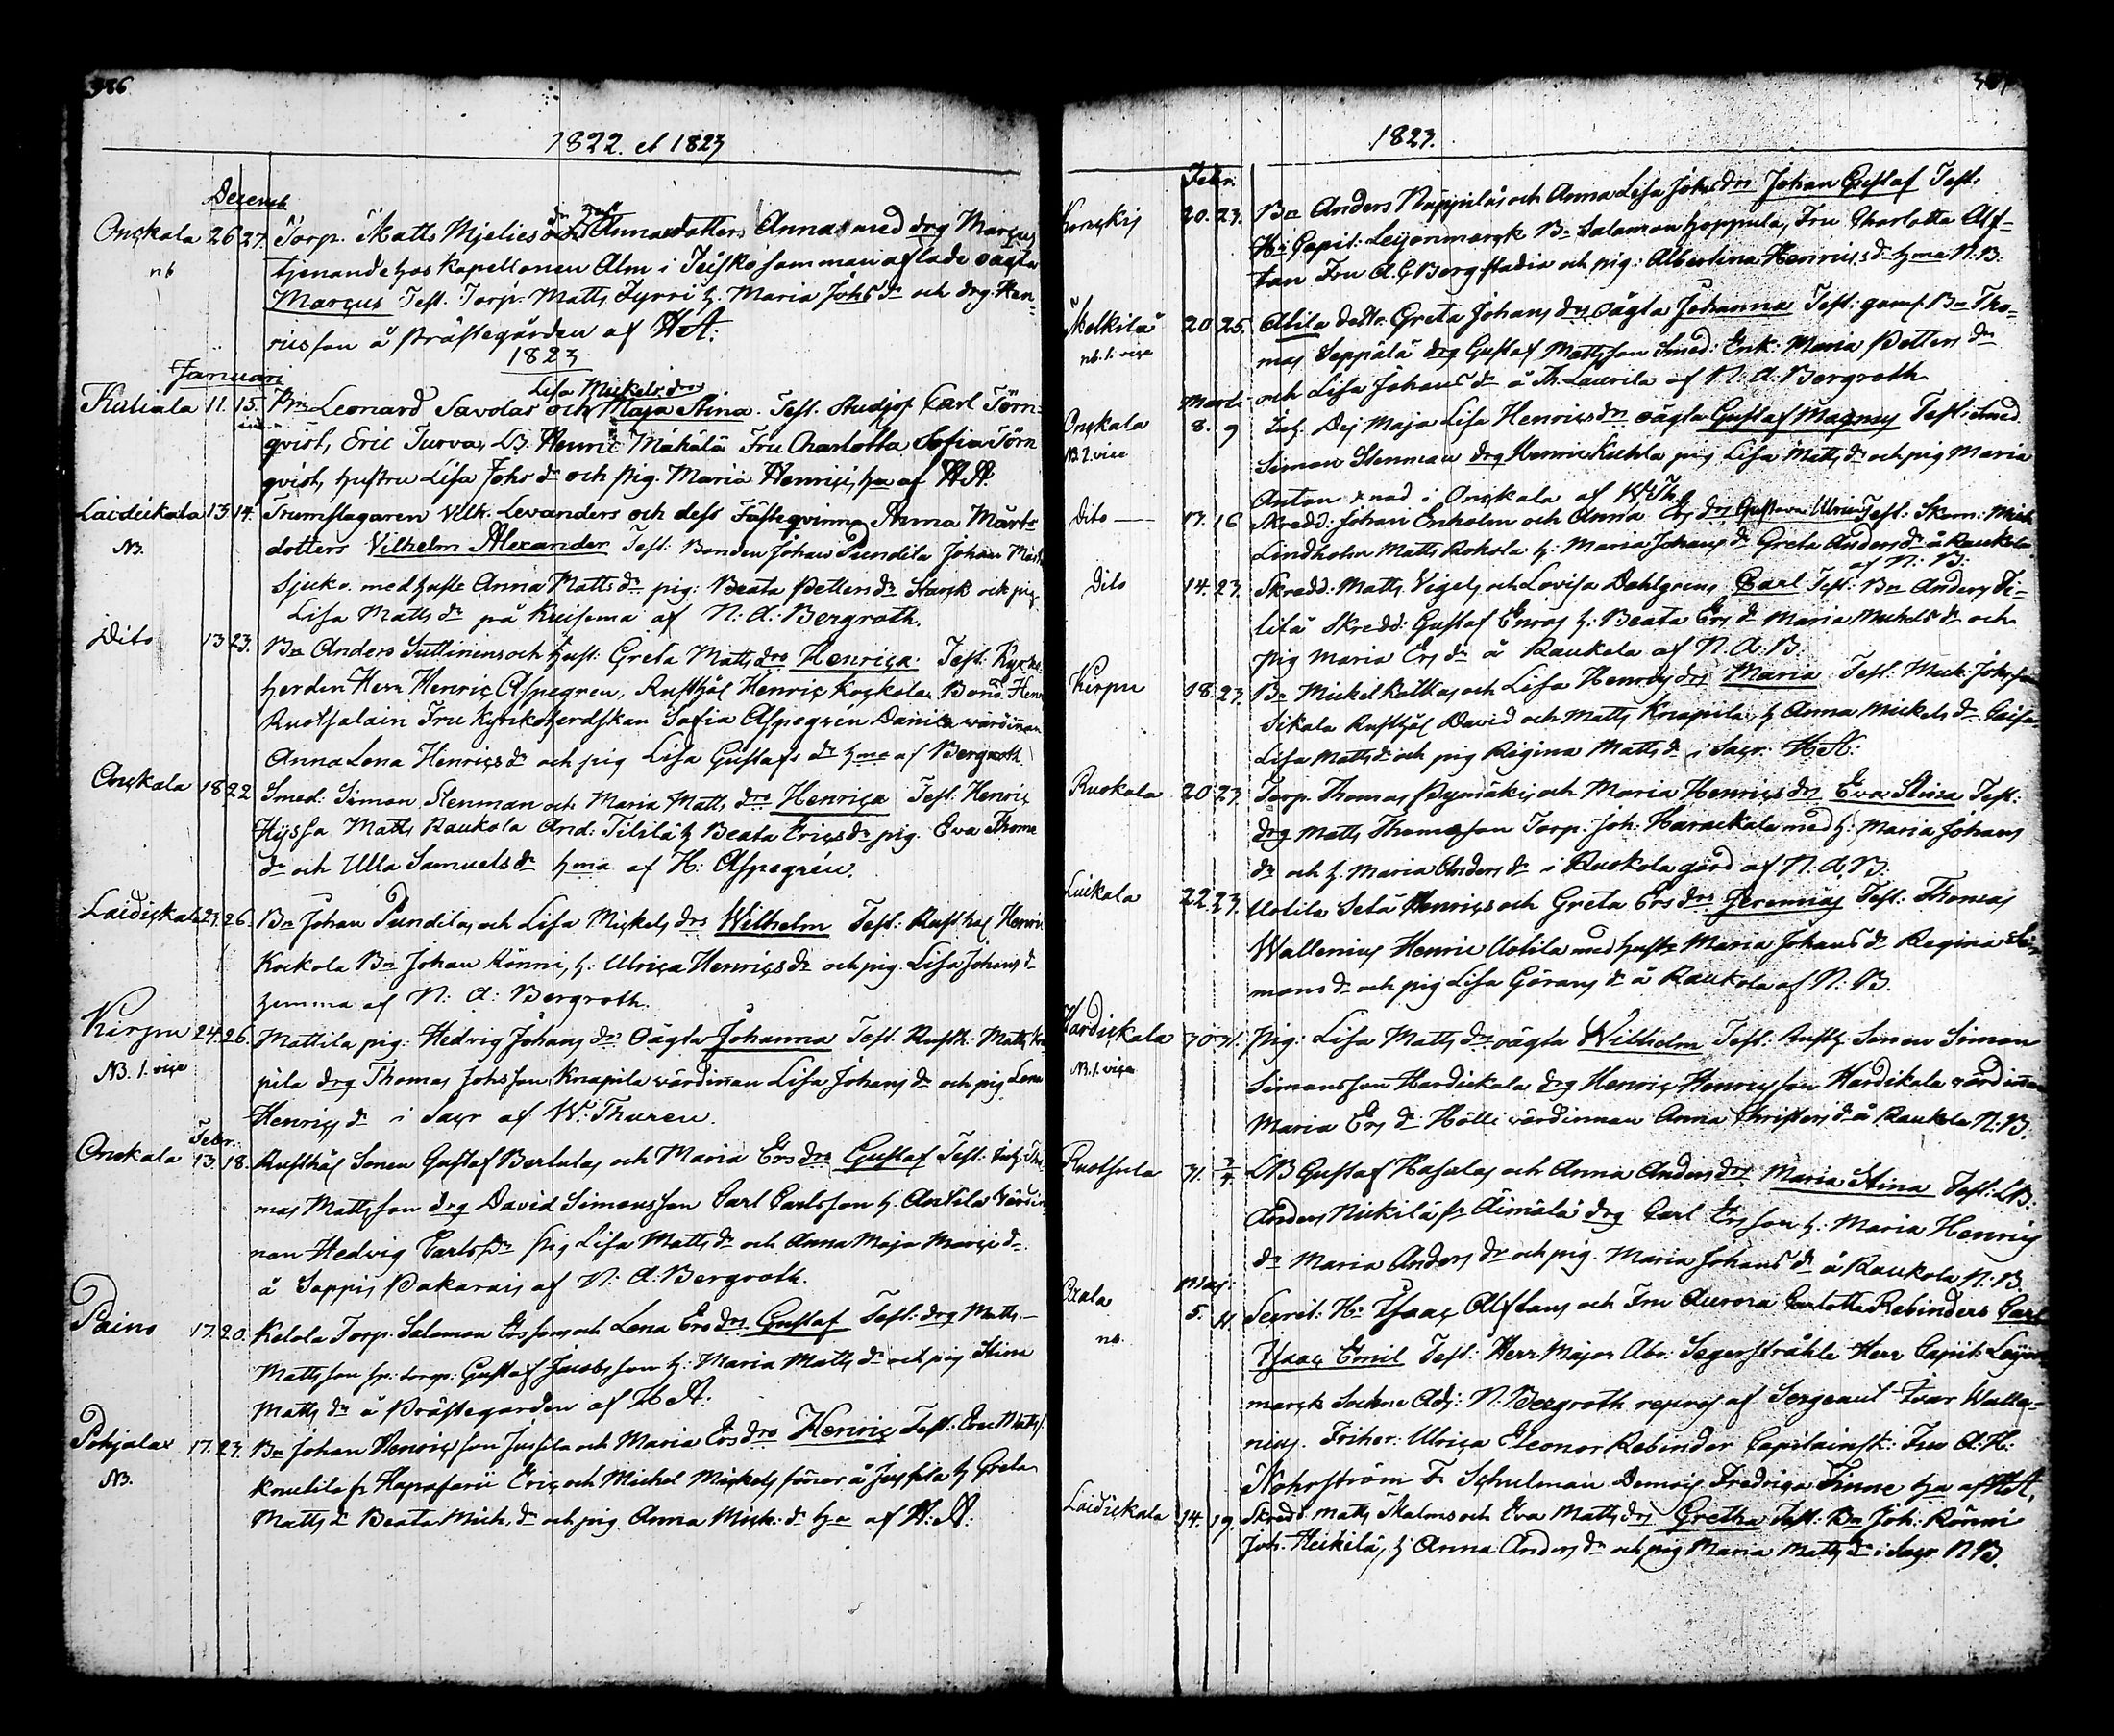 386
1822. et 1823
Decemb
Onckala 26 27. Torp. Matts Mjelies och Annasdotters Annas med drg Marcus
nb tjenande hos Kapellonen Alm i Teisko samman aflade oägta
Marcus Test. Torp. Matts Fyrri h. Maria Johs dr och drg. Hen-
ricsson å Prästegården af HA:
1823
Januari
Lisa Mickels dr
Kuliala 11. 15. Bn Leonard Savolas och Maja Stina. Test. Studios Carl Törn-
qvist, Eric Turva, LB. Henric Mäkälä Fru Charlotta Sofia Törn
qvist, hustru Lisa Johs dr och pig. Maria Henrici, ha af HA.
Laidickala 13. 14. Trumslagaren Vilh. Levanders och dess Fästeqvinna Anna Märts
NB. dotters Vilhelm Alexander Test: Bonden Johan Pundila Johan
Sjuko. med hust Anna Matts dr pig: Beata Petters dr Starck och pig
Lisa Matts dr på Kuisema af N: A: Bergroth.
Dito 13 23. Bn Anders Suttinens och hust: Greta Matts drs Henrica. Test: Kyrko-
herden Herr Henric Aspegren, Rusthål Henric Kockola Bond. Henr
Ruotsalain Fru Kyrkoherdskan Sofia Aspegrén Danila värdinnan
Anna Lena Henrics dr och pig Lisa Gustafs dr hma af Bergroth
Onckala 18 22 Smed: Simon Stenman och Maria Matts drs Henrica Test: Henric
Hyssa Matts Raukola And: Tililä h Beata Erics dr pig. Eva Thome
dr och Ulla Samuels dr hma af H: Aspegrén.
Laidickala 23. 26. Bn Johan Pundilas och Lisa Mickels drs Wilhelm Test: Rusthål Henric
Kockola Bn Johan Rönni, h: Ulrica Henrics dr och pig. Lisa Johans dr
hemma af N: A: Bergroth.
Kirpu 24. 26. Mattila pig: Hedvig Johans drs Oägta Johanna Test. Rusth: Matts Kna-
NB. 1. vice pila drg Thomas Johsson Knapila värdinnan Lisa Johans dr och pig Lena
Henrics dr i Sacr af W: Thuren.
Febr:
Onckala 13. 18. Rusthål Sonen Gustaf Bertulas och Maria Ers drs Gustaf Test: Tho-
mas Mattsson drg David Simonsson Carl Carlsson h. Antila Värdin-
nan Hedvig Carls dr pig Lisa Matts dr och Anna Maja Marci dr
å Sappis Pakarais af N: A: Bergroth.
Paino 17. 20. Kelola Torp. Salomon Erssons och Lena Ers drs Gustaf Test: drg Matts
Mattsson fr: torp: Gustaf Jacobsson h: Maria Matts dr och pig Stina
Matts dr å Prästegården af HA:
Pohjala 17. 23. Bn Johan Henricsson Jussila och Maria Ers drs Henric Test: Eric Matts
NB. Knutila fr Hapafarii Eric och Michel Mickels söner å Jussila h Greta
Matts dr Beata Mich. dr och pig Anna Mick: dr ha af H: A:
387
1823.
Febr.
20. 23. Bn Anders Näppiläs och Anna Lisa Johs drs Johan Gustaf Test:
Hr Capit: Leijonmarck Bn Salamon Hoppula, Fru Charlotta Alf-
tan Fru A. G Bergstadia och pig: Albertina Henrics dr hma N: B.
Skolkilä 20 25. Alila dottr. Greta Johans drs oägta Johanna Test: gaml. Bn Tho-
nb. 1. vice mas Seppälä drg Gustaf Mattsson Smed: Enk: Maria Petters dr
och Lisa Johans dr å Th. Laurila af N: A: Bergroth
Martii
Onckala 8. 9 Inh. Dej Maja Lisa Henrics drs oägta Gustaf Magnus Test: Smed
NB 2. vice Simon Stenman drg Henric Kuhla pig Lisa Matts dr och pig Maria
Anton nad i Onckala af W: Th.
Dito 13. 16 Skredd: Johan Enholm och Anna Ers drs Gustava Ulrica Test: Skom: Mich
Lindholm Matts Rohola h: Maria Johans dr Greta Anders dr å Raukola
af N: B:
Dito 14. 23. Skredd: Matts Vigels och Lovisa Dahlgrens Carl Test: Bn Anders Ti-
lilä Skredd: Gustaf Enros h: Beata Ers dr Maria Michels dr och
pig Maria Ers dr å Raukola af N. A. B.
Kirpu 18. 23. Bn Mickel Kolkas och Lisa Henrics drs Maria Test: Mick: Johsson
Sikala Rusthål David och Matts Knapila, h Anna Mickels dr Caisa
Lisa Matts dr och pig Regina Matts dr i Sacr. HA:
Ruokola 20 23. Torp. Thomas Pynnäkis och Maria Henrics drs Eva Stina Test:
drg Matts Thomasson Torp. Joh: Harackala med h: Maria Johans
dr och h. Maria Anders dr i Ruokola gård af N. A. B.
Luikala 22. 23. Uotila Setä Henrics och Greta Ers drs Jeremias Test: Thomas
Wallenius Henric Uotila med hustr Maria Johans dr Regina Si-
mons dr och pig Lisa Görans dr å Raukola af N: B.
Hardickala 30 31. Pig: Lisa Matts drs oägta Wilhelm Test: Rusth. Sonen Simon
NB. 1. vice Simonsson Hardickala drg Henric Henricsson Hardikala värdinnan
Maria Ers dr Hölli värdinnan Anna Christers dr å Raukola N: B.
Ruotsula 31. 3/4 LB Gustaf Hasalas och Anna Anders drs Maria Stina Test: LB:
Anders Nickilä fr Äimälä drg Carl Ersson h: Maria Henrics
dr Maria Anders dr och pig. Maria Johans dr å Raukola N: B.
Maj:
5. 11. Secret: Hr Isaac Alftans och Fru Aurora Carlotta Rebinders Carl
nb. Isaac Emil Test: Herr Major Abr: Segerstråhle Herr Capit: Leijon-
marck Sockne Adj: N: Bergroth repres af Sergeant Ivar Walle-
nius. Friher: Ulrica Eleonor Rebinder Capitainsk: Fru A: H:
Nohrström F. Schulman Demois Fredrica Finne ha af HA.
Laidickala 14. 19. Skredd. Matts Skalms och Eva Matts drs Gretha Test: Bn Joh: Rönni
Joh. Heikilä, h Anna Anders dr och pig Maria Matts dr i Sacr N. B.